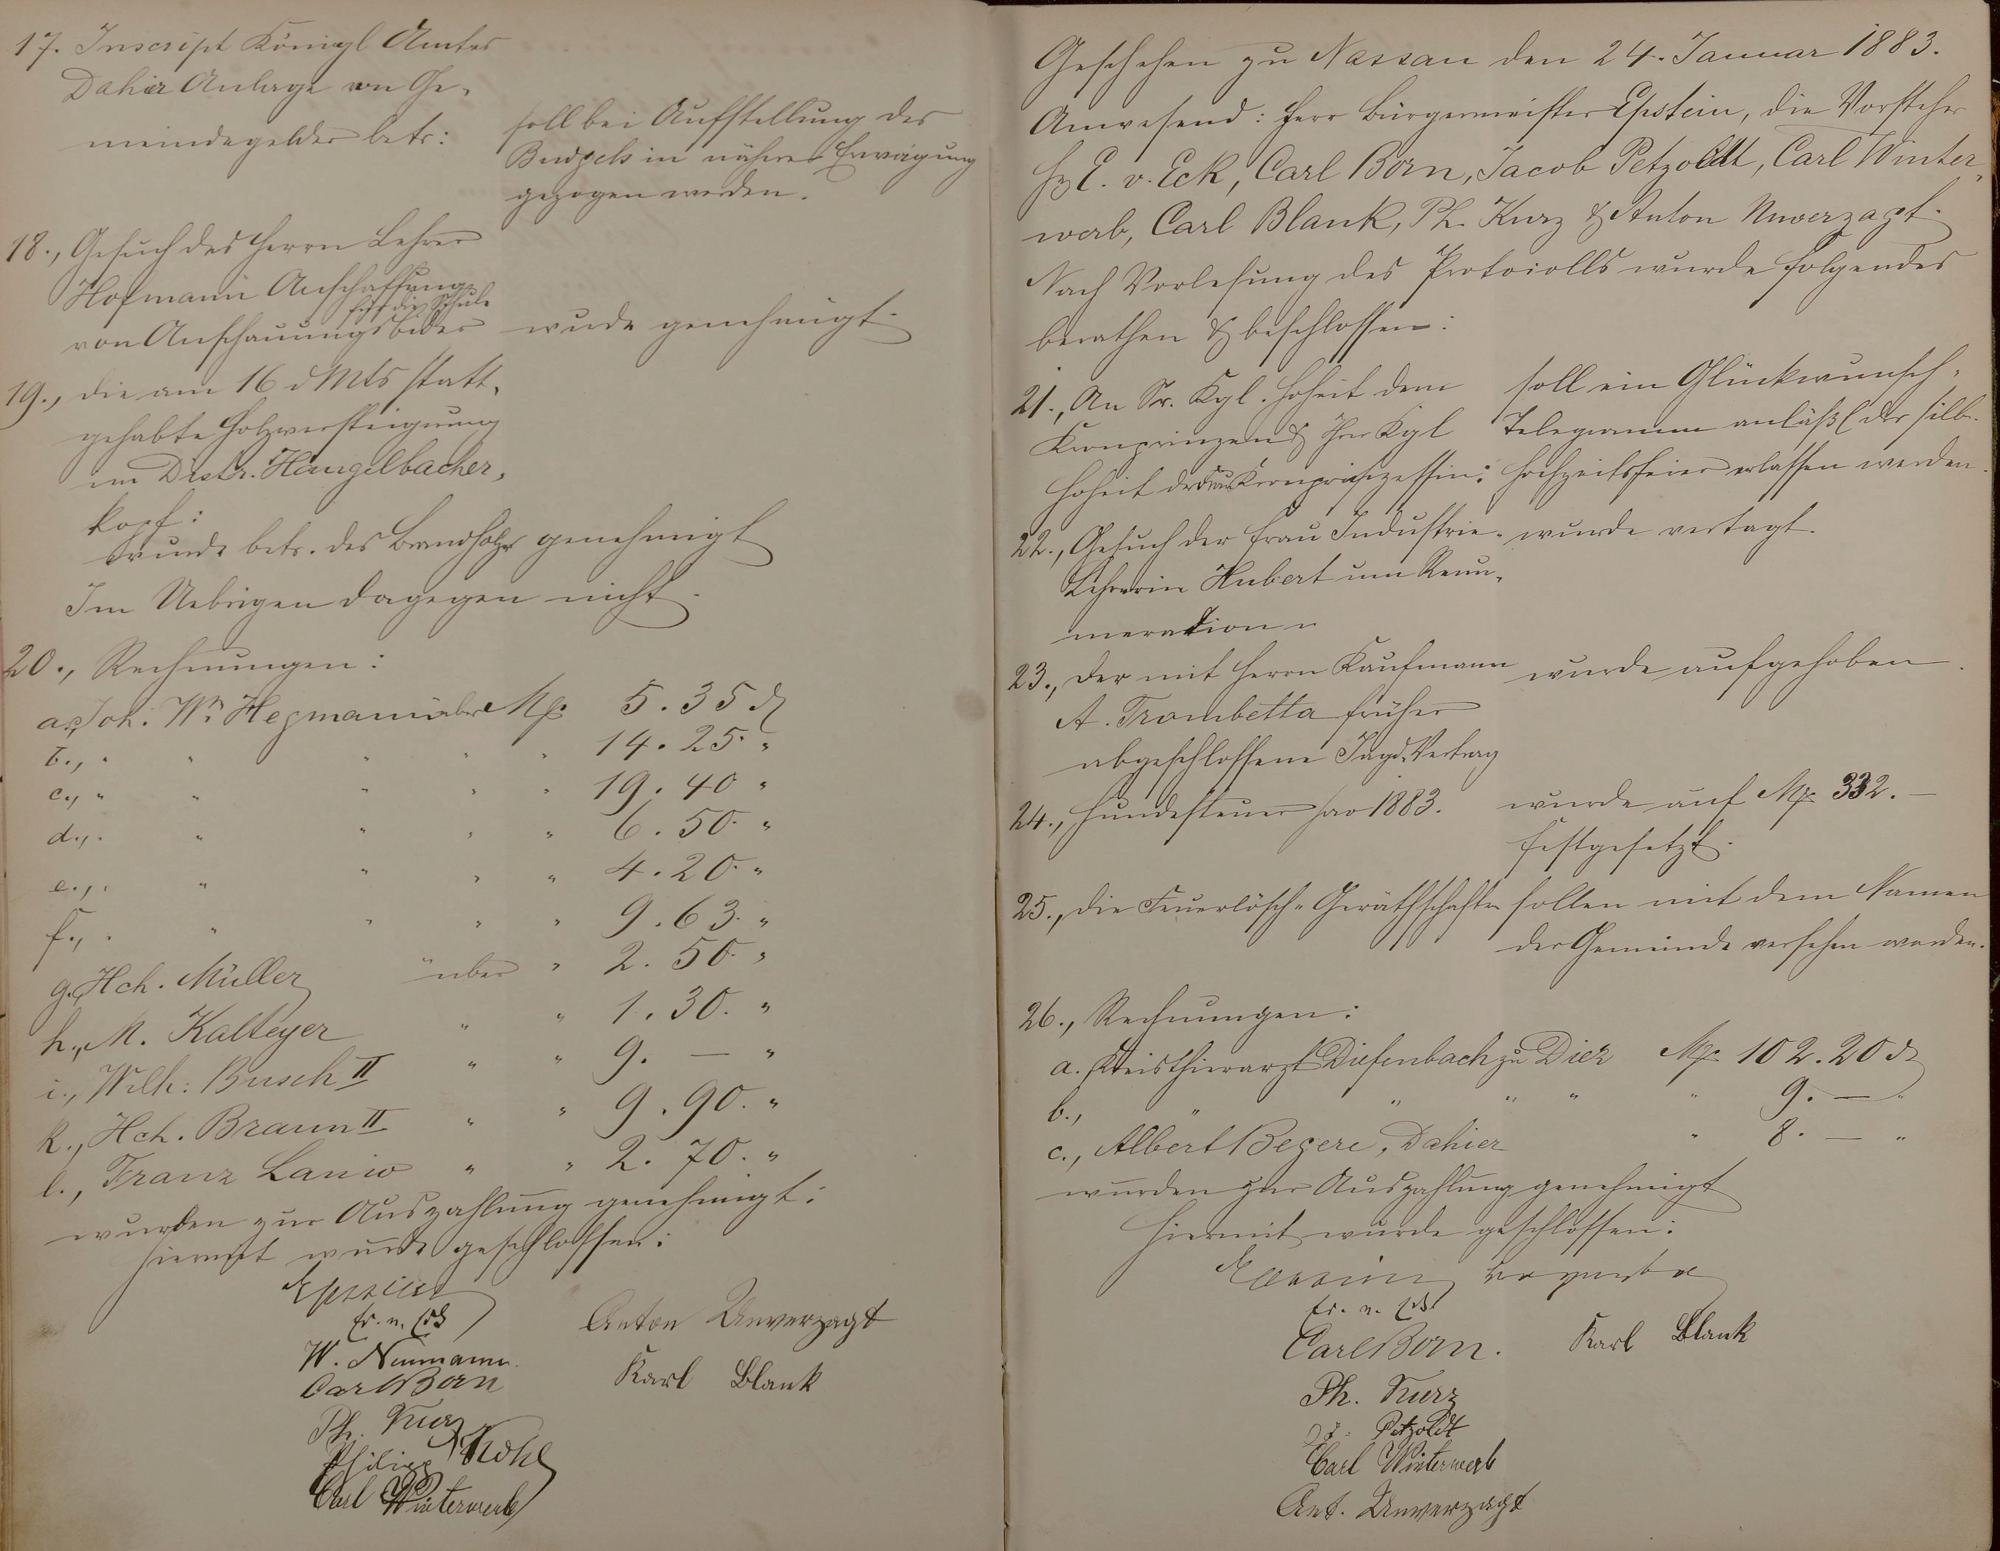 17. Inscript Königl Amtes
Dahier Anlage von Ge-
meindegelder betr:
soll bei Aufstellung des
Budgets in nähere Erwägung
gezogen werden.
18., Gesuch des Herrn Lehrer
Hofmann Anschaffung
für die Schule
von Anschauungsbilder wurde genehmigt.
19., die am 16 d Mts statt-
gehabte Holzversteigerung
im Distr. Hangelbacher-
kopf:
wurde betr. des Brandholzes genehmigt
Im Uebrigen dagegen nicht.
20., Rechnungen:
a., Joh. Wm Hegmann über Mk 5.35 ₰
b., " " " " " 14.25. "
c., " " " " " 19.40 "
d., " " " " " 6.50. "
e., " " " " " 4.20. "
f., " " " " " 9.63. "
g., Hch. Müller über " 2.50. "
h., M. Kalteyer " " 1.30. "
i., Wilh: Busch II " " 9. — "
k., Hch. Braun II " " 9.90. "
l., Franz Lanio " " 2.70. "
wurden zur Auszahlung genehmigt:
Hiermit wurde geschlossen:
Epstein
Er. v. Eck
W. Neumann
Carl Born
Ph. Kurz
Philipp Kohl
Carl Winterwerb
Anton Unverzagt
Karl Blank
Geschehen zu Nassau den 24. Januar 1883.
Anwesend: Herr Bürgermeister Epstein, die Vorsteher
H E. v. Eck, Carl Born, Jacob Petzoldt, Carl Winter-
werb, Carl Blank, Ph. Kurz & Anton Unverzagt.
Nach Vorlesung des Protocolls wurde folgendes
berathen & beschlossen:
21., An Sr. Kgl. Hoheit dem soll ein Glückwunsch-
Kronprinzen & Ihre Kgl Telegramm anläßl der silb.
Hoheit der Frau Kronprinzessin: Hochzeitsfeier erlassen werden.
22., Gesuch der Frau Industrie- wurde vertagt.
Lehrerin Hubert um Remu-
neration
23., der mit Herrn Kaufmann wurde aufgehoben.
A. Trombetta früher
abgeschlossene Jagd-Vertrag
24., Hundesteuer pro 1883. wurde auf Mk 332. —
festgesetzt.
25., die Feuerlösch-Geräthschaften sollen mit dem Namen
der Gemeinde versehen werden.
26., Rechnungen:
a. Kreisthierarzt Diefenbach zu Diez Mk 102.20 ₰
b., " " " " " 9. — "
c., Albert Begere, Dahier " 8. — "
wurden zur Auszahlung genehmigt
Hiermit wurde geschlossen:
Epstein
Er. v. Eck
Carl Born.
Karl Blank
Ph. Kurz
Petzoldt
Carl Winterwerb
Ant. Unverzagt